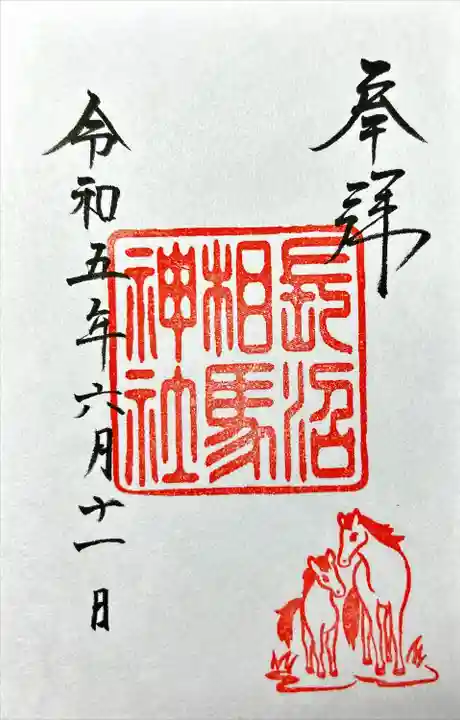 奉拜
長沼
相馬
神社
令和五年六月十一日